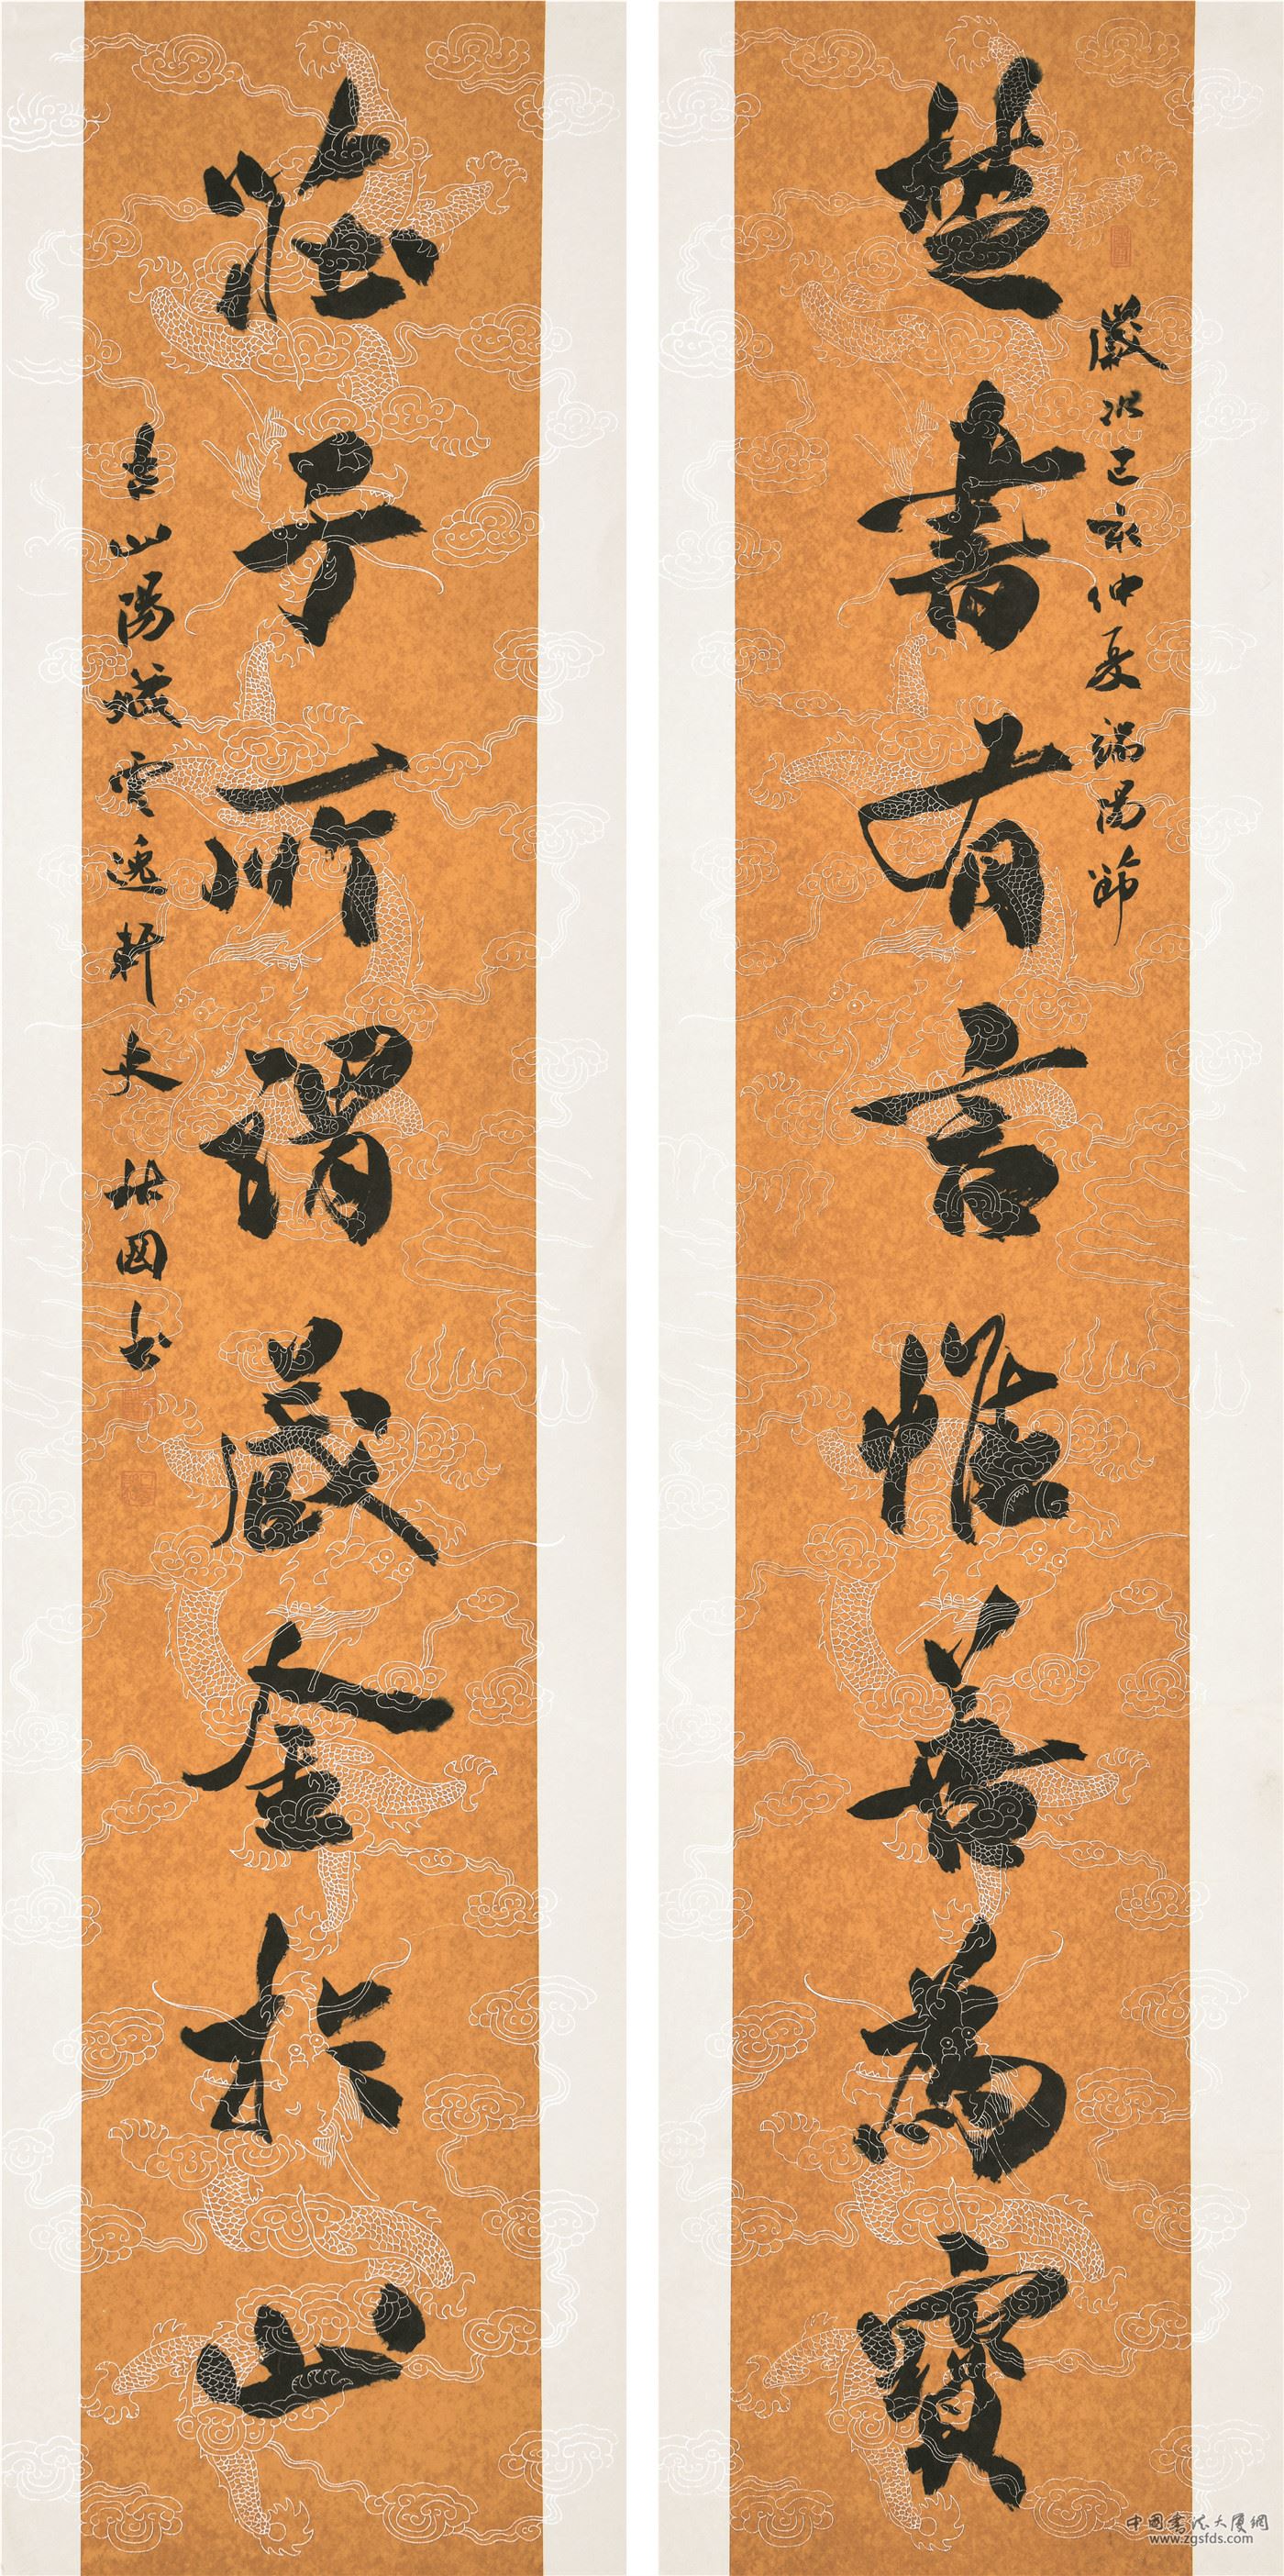 楚書有言惟善為寶
歲次己亥仲夏端陽節
莊子所謂藏金於山
立山陽城雲逸軒夫林國書
中國書法大廈網
www.zgsfds.com